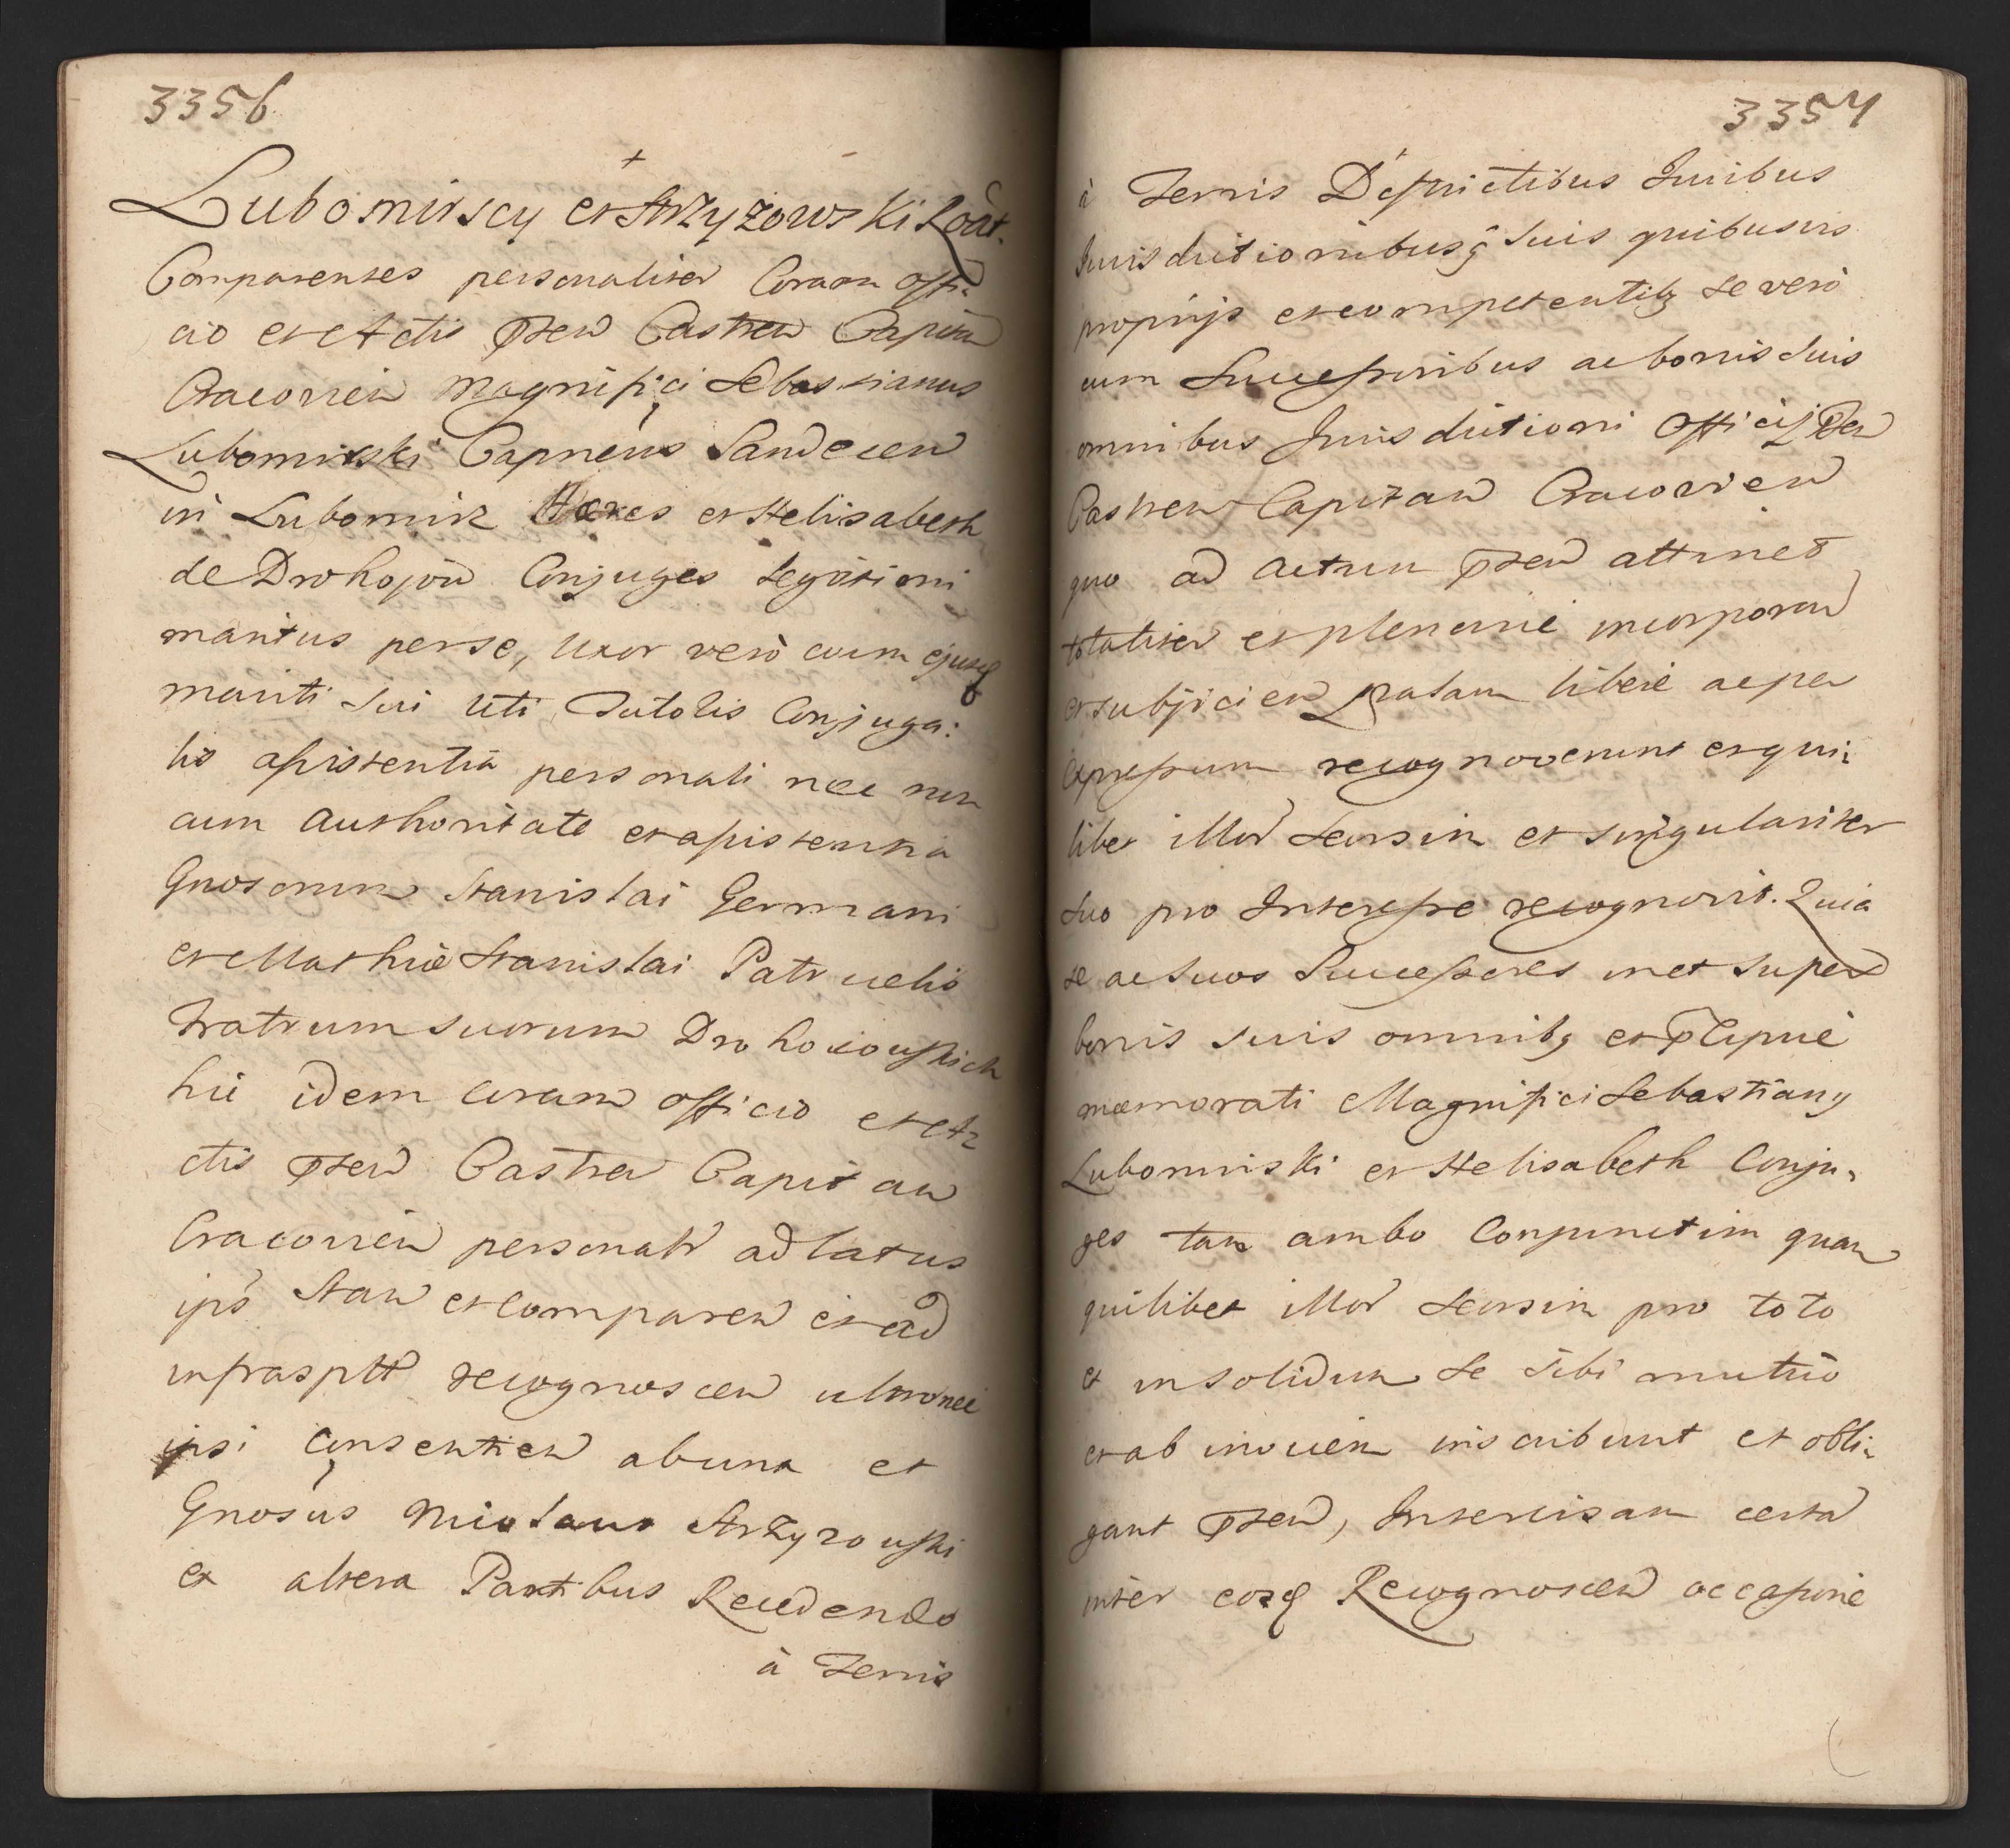 3356
Lubomirscy et Strzyżowski Roāt.
Comparentes personaliter Coram Offi
cio et Actis pten Castren Capitan
Cracovien Magnifici Sebastianus
Lubomirski Capneus Sandecen
in Lubomirz Haeres et Helisabeth
de Drohojow Conjuges legitimi
maritus per se, Uxor verò cum ejusq
mariti sui uti Tutoris Conjuga:
lis assistentia personali nec non
cum Authoritate et assistentia
Gnosorum Stanislai Germani
et Mathiae Stanislai Patruelis
Fratrum suorum Drohoiowskich
hic idem coram officio et A
ctis pten Castren Capitan
Cracovien personalr ad latus
ips Stan et comparen et ad
infrasptt recognoscen ultronee
ipsi Consentien ab una et
Gnosus Strzyzowski
ex altera Partibus Recedendo
à Terris
3357
à Terris Districtibus Juribus
Jurisdictionibusq suis quibusvis
proprijs et competentibq se verò
cum Successoribus ac bonis suis
omnibus Jurisdictioni Officij pten
Castren Capitan Cracovien
quo ad Actum pten attinet
totaliter et plenarie incorporan
et subjicien palam libere ac per
Expressum recognoverunt et qui
libet illor seorsim et singulariter
suo pro Interesse recognovit. Quia
se ac suos Successores met super
bonis suis omnibq et
memorati Magnifici Sebastianq
Lubomirski et Helisabeth Conju
ges tam ambo Conjunctim quam
quilibet illor seorsim pro toto
et in solidum se sibi mutuo
et ab invicem inscribunt et obli
gant pten, Intercisam certa
inter eosq Recognoscen occasione